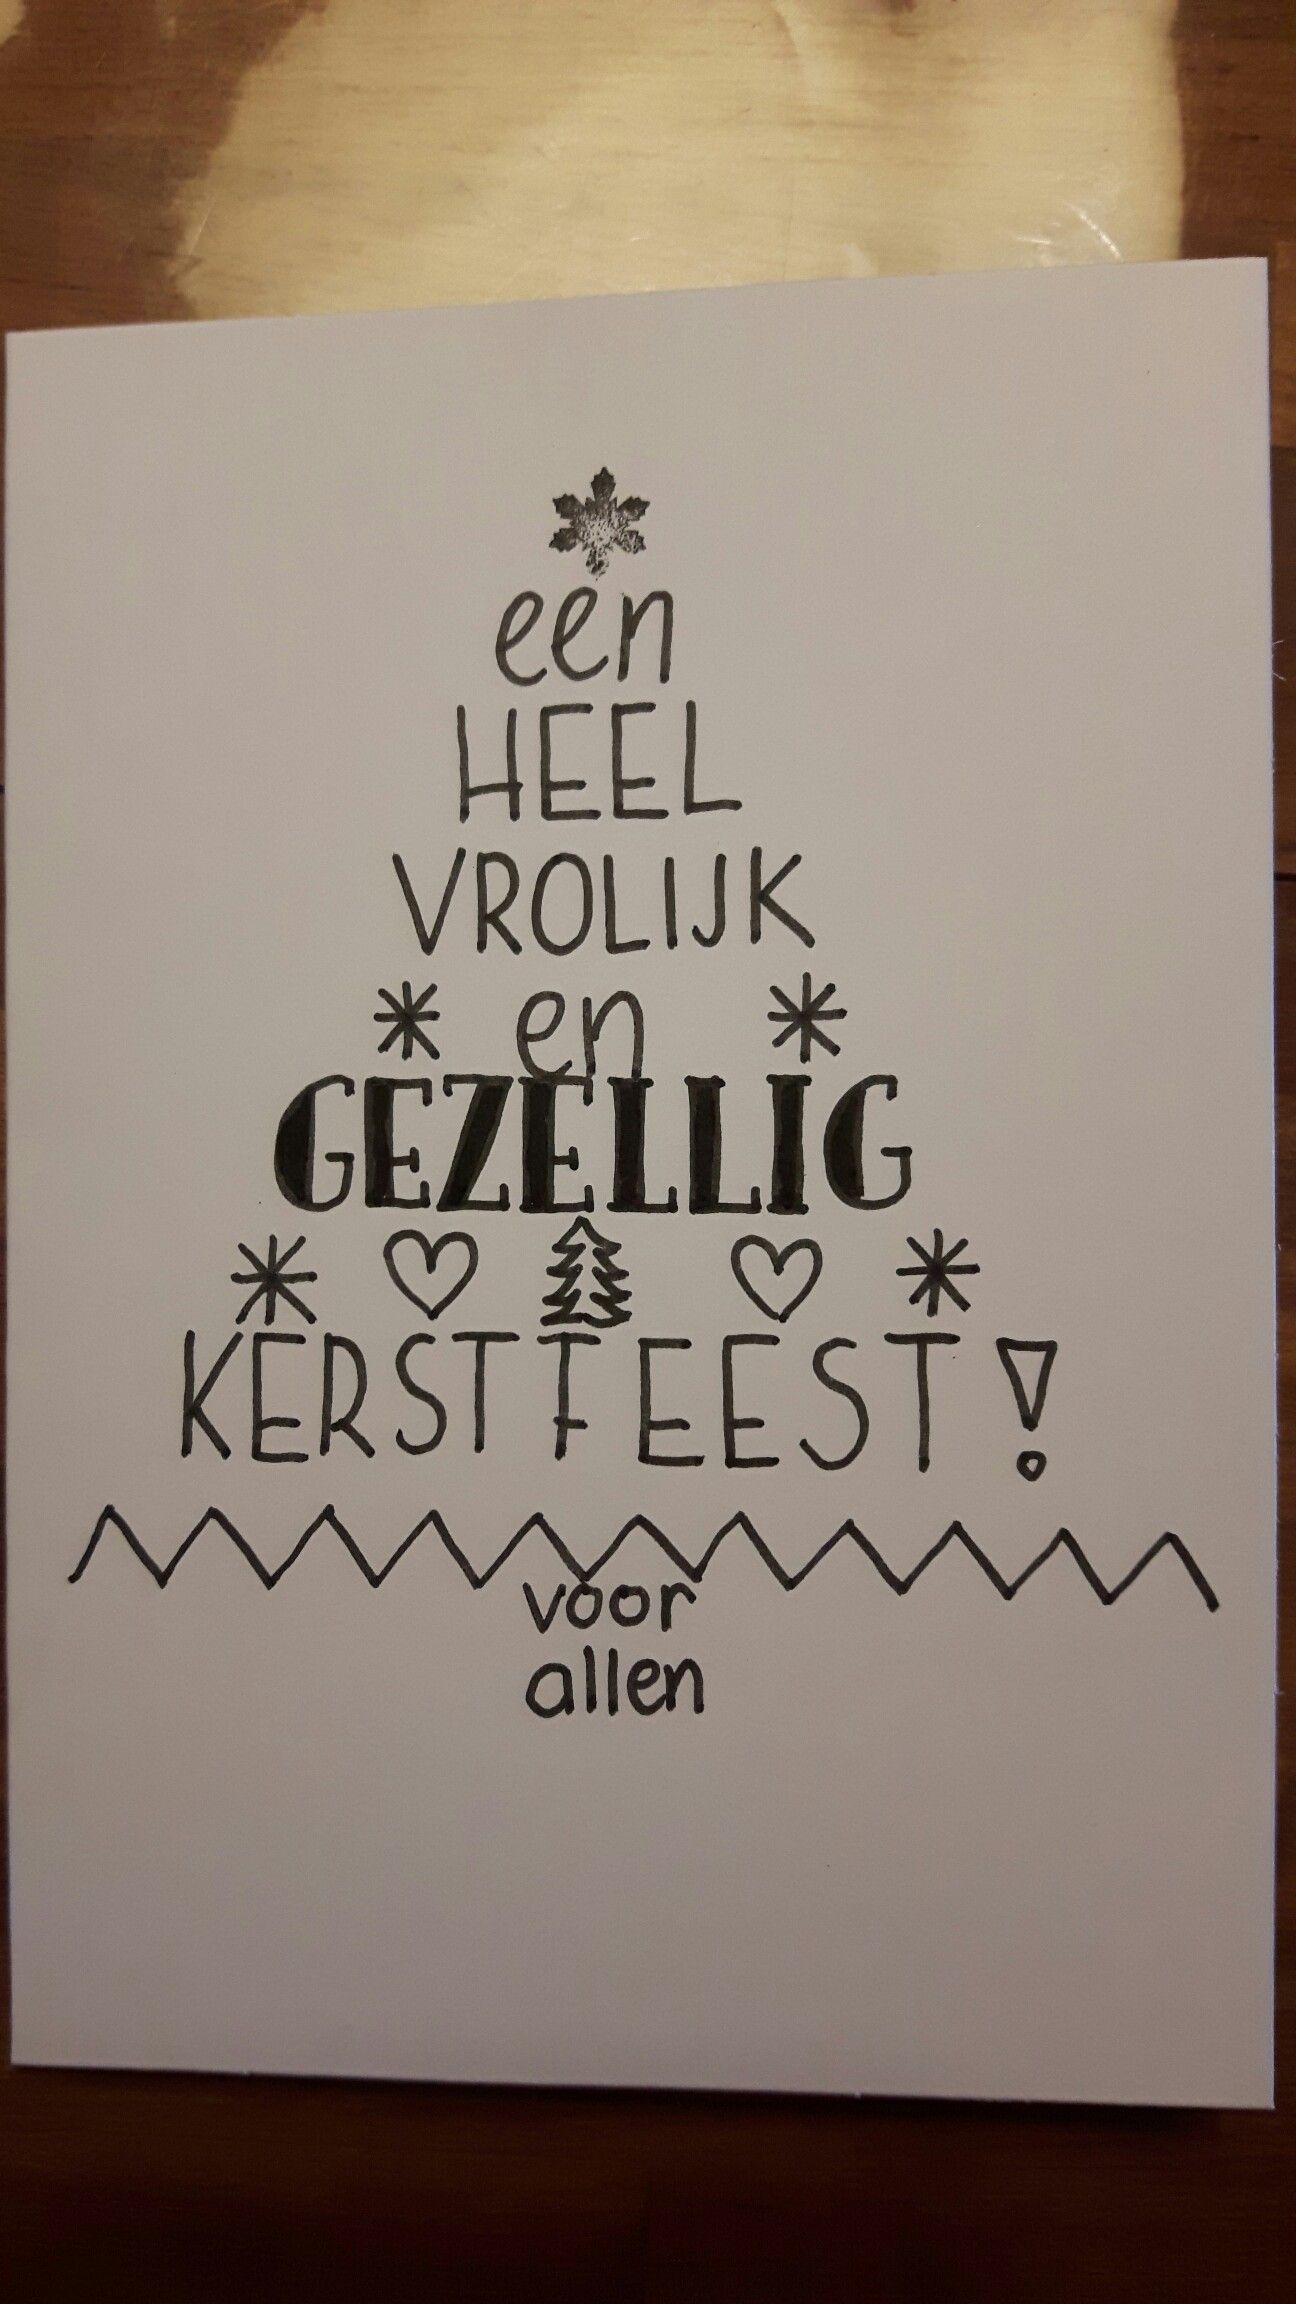 een
HEEL
VROLIJK
en
GEZELLIG
KERSTFEEST!
voor
allen